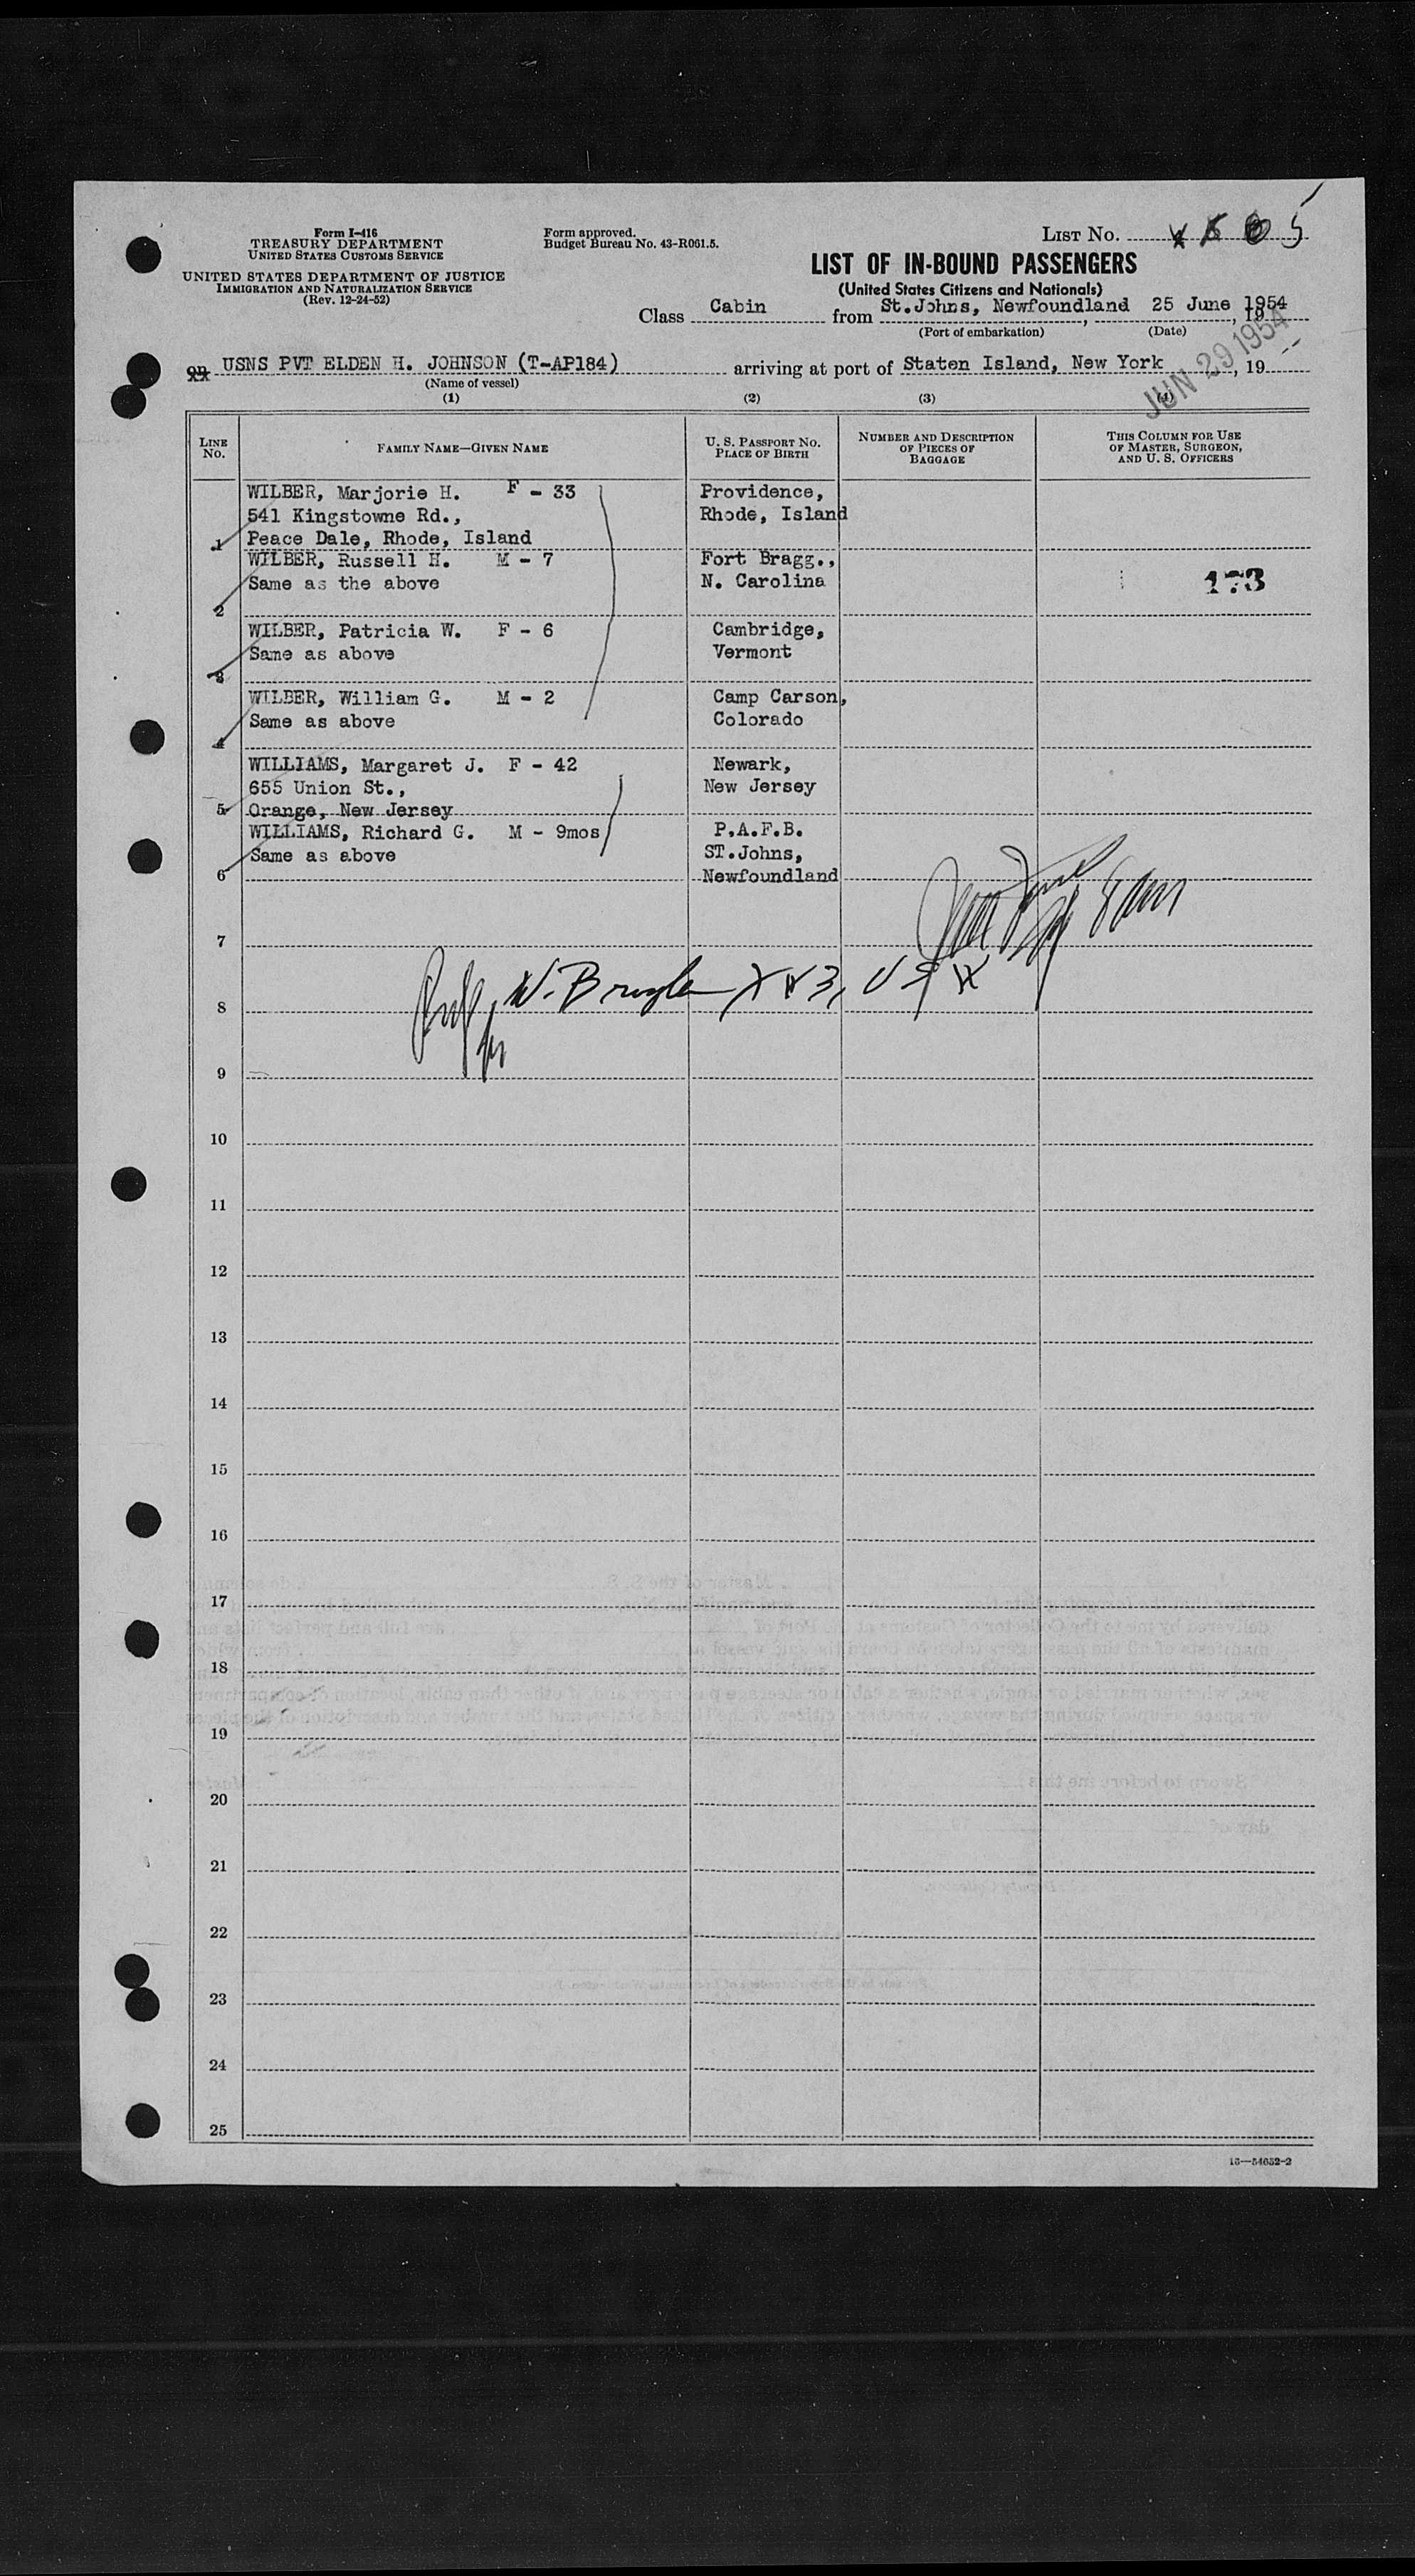 Form I-416
TREASURY DEPARTMENT
UNITED STATES CUSTOMS SERVICE
UNITED STATES DEPARTMENT OF JUSTICE
IMMIGRATION AND NATURALIZATION SERVICE
(Rev. 12-24-52)
Form approved.
Budget Bureau No. 43-R061.5.
LIST NO. 5
LIST OF IN-BOUND PASSENGERS
(United States Citizens and Nationals)
Class Cabin from St.Johns, Newfoundland, 25 June, 1954
(Port of embarkation) (Date)
on USNS PVT ELDEN H. JOHNSON (T-AP184) arriving at port of Staten Island, New York, 19
(Name of vessel)
JUN 29 1954
(1) (2) (3) (4)
LINE NO. FAMILY NAME—GIVEN NAME U. S. PASSPORT NO. PLACE OF BIRTH NUMBER AND DESCRIPTION OF PIECES OF BAGGAGE THIS COLUMN FOR USE OF MASTER, SURGEON, AND U. S. OFFICERS
WILBER, Marjorie H. F - 33 Providence,
541 Kingstowne Rd., Rhode, Island
1 Peace Dale, Rhode, Island
WILBER, Russell H. M - 7 Fort Bragg.,
Same as the above N. Carolina 173
2
WILBER, Patricia W. F - 6 Cambridge,
Same as above Vermont
3
WILBER, William G. M - 2 Camp Carson,
Same as above Colorado
4
WILLIAMS, Margaret J. F - 42 Newark,
655 Union St., New Jersey
5 Orange, New Jersey
WILLIAMS, Richard G. M - 9mos P.A.F.B.
Same as above ST.Johns,
6 Newfoundland
7
8
9
10
11
12
13
14
15
16
17
18
19
20
21
22
23
24
25
16—54652-2